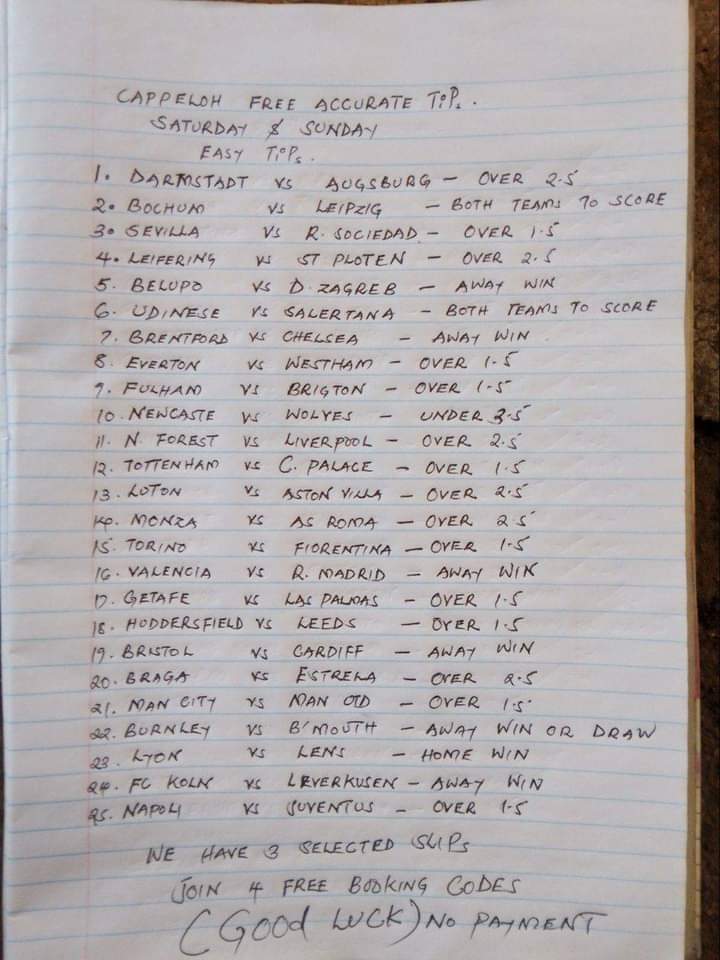 CAPPELOH FREE ACCURATE TiPs.
SATURDAY & SUNDAY
EASY TiPs.
1. DARMSTADT VS AUGSBURG - OVER 2.5
2. BOCHUM VS LEIPZIG - BOTH TEAMS TO SCORE
3. SEVILLA VS R. SOCIEDAD - OVER 1.5
4. LEIFERING VS ST PLOTEN - OVER 2.5
5. BELUPO VS D. ZAGREB - AWAY WIN
6. UDINESE VS SALERTANA - BOTH TEAMS TO SCORE
7. BRENTFORD VS CHELSEA - AWAY WIN
8. EVERTON VS WESTHAM - OVER 1.5
9. FULHAM VS BRIGTON - OVER 1.5
10. NEWCASTE VS WOLVES - UNDER 3.5
11. N. FOREST VS LIVERPOOL - OVER 2.5
12. TOTTENHAM VS C. PALACE - OVER 1.5
13. LUTON VS ASTON VILLA - OVER 2.5
14. MONZA VS AS ROMA - OVER 2.5
15. TORINO VS FIORENTINA - OVER 1.5
16. VALENCIA VS R. MADRID - AWAY WIN
17. GETAFE VS LAS PALMAS - OVER 1.5
18. HODDERSFIELD VS LEEDS - OVER 1.5
19. BRISTOL VS CARDIFF - AWAY WIN
20. BRAGA VS ESTRELA - OVER 2.5
21. MAN CITY VS MAN UTD - OVER 1.5
22. BURNLEY VS B'MOUTH - AWAY WIN OR DRAW
23. LYON VS LENS - HOME WIN
24. FC KOLN VS LEVERKUSEN - AWAY WIN
25. NAPOLI VS JUVENTUS - OVER 1.5
WE HAVE 3 SELECTED SLIPS
JOIN 4 FREE BOOKING CODES
(GOOD LUCK) NO PAYMENT